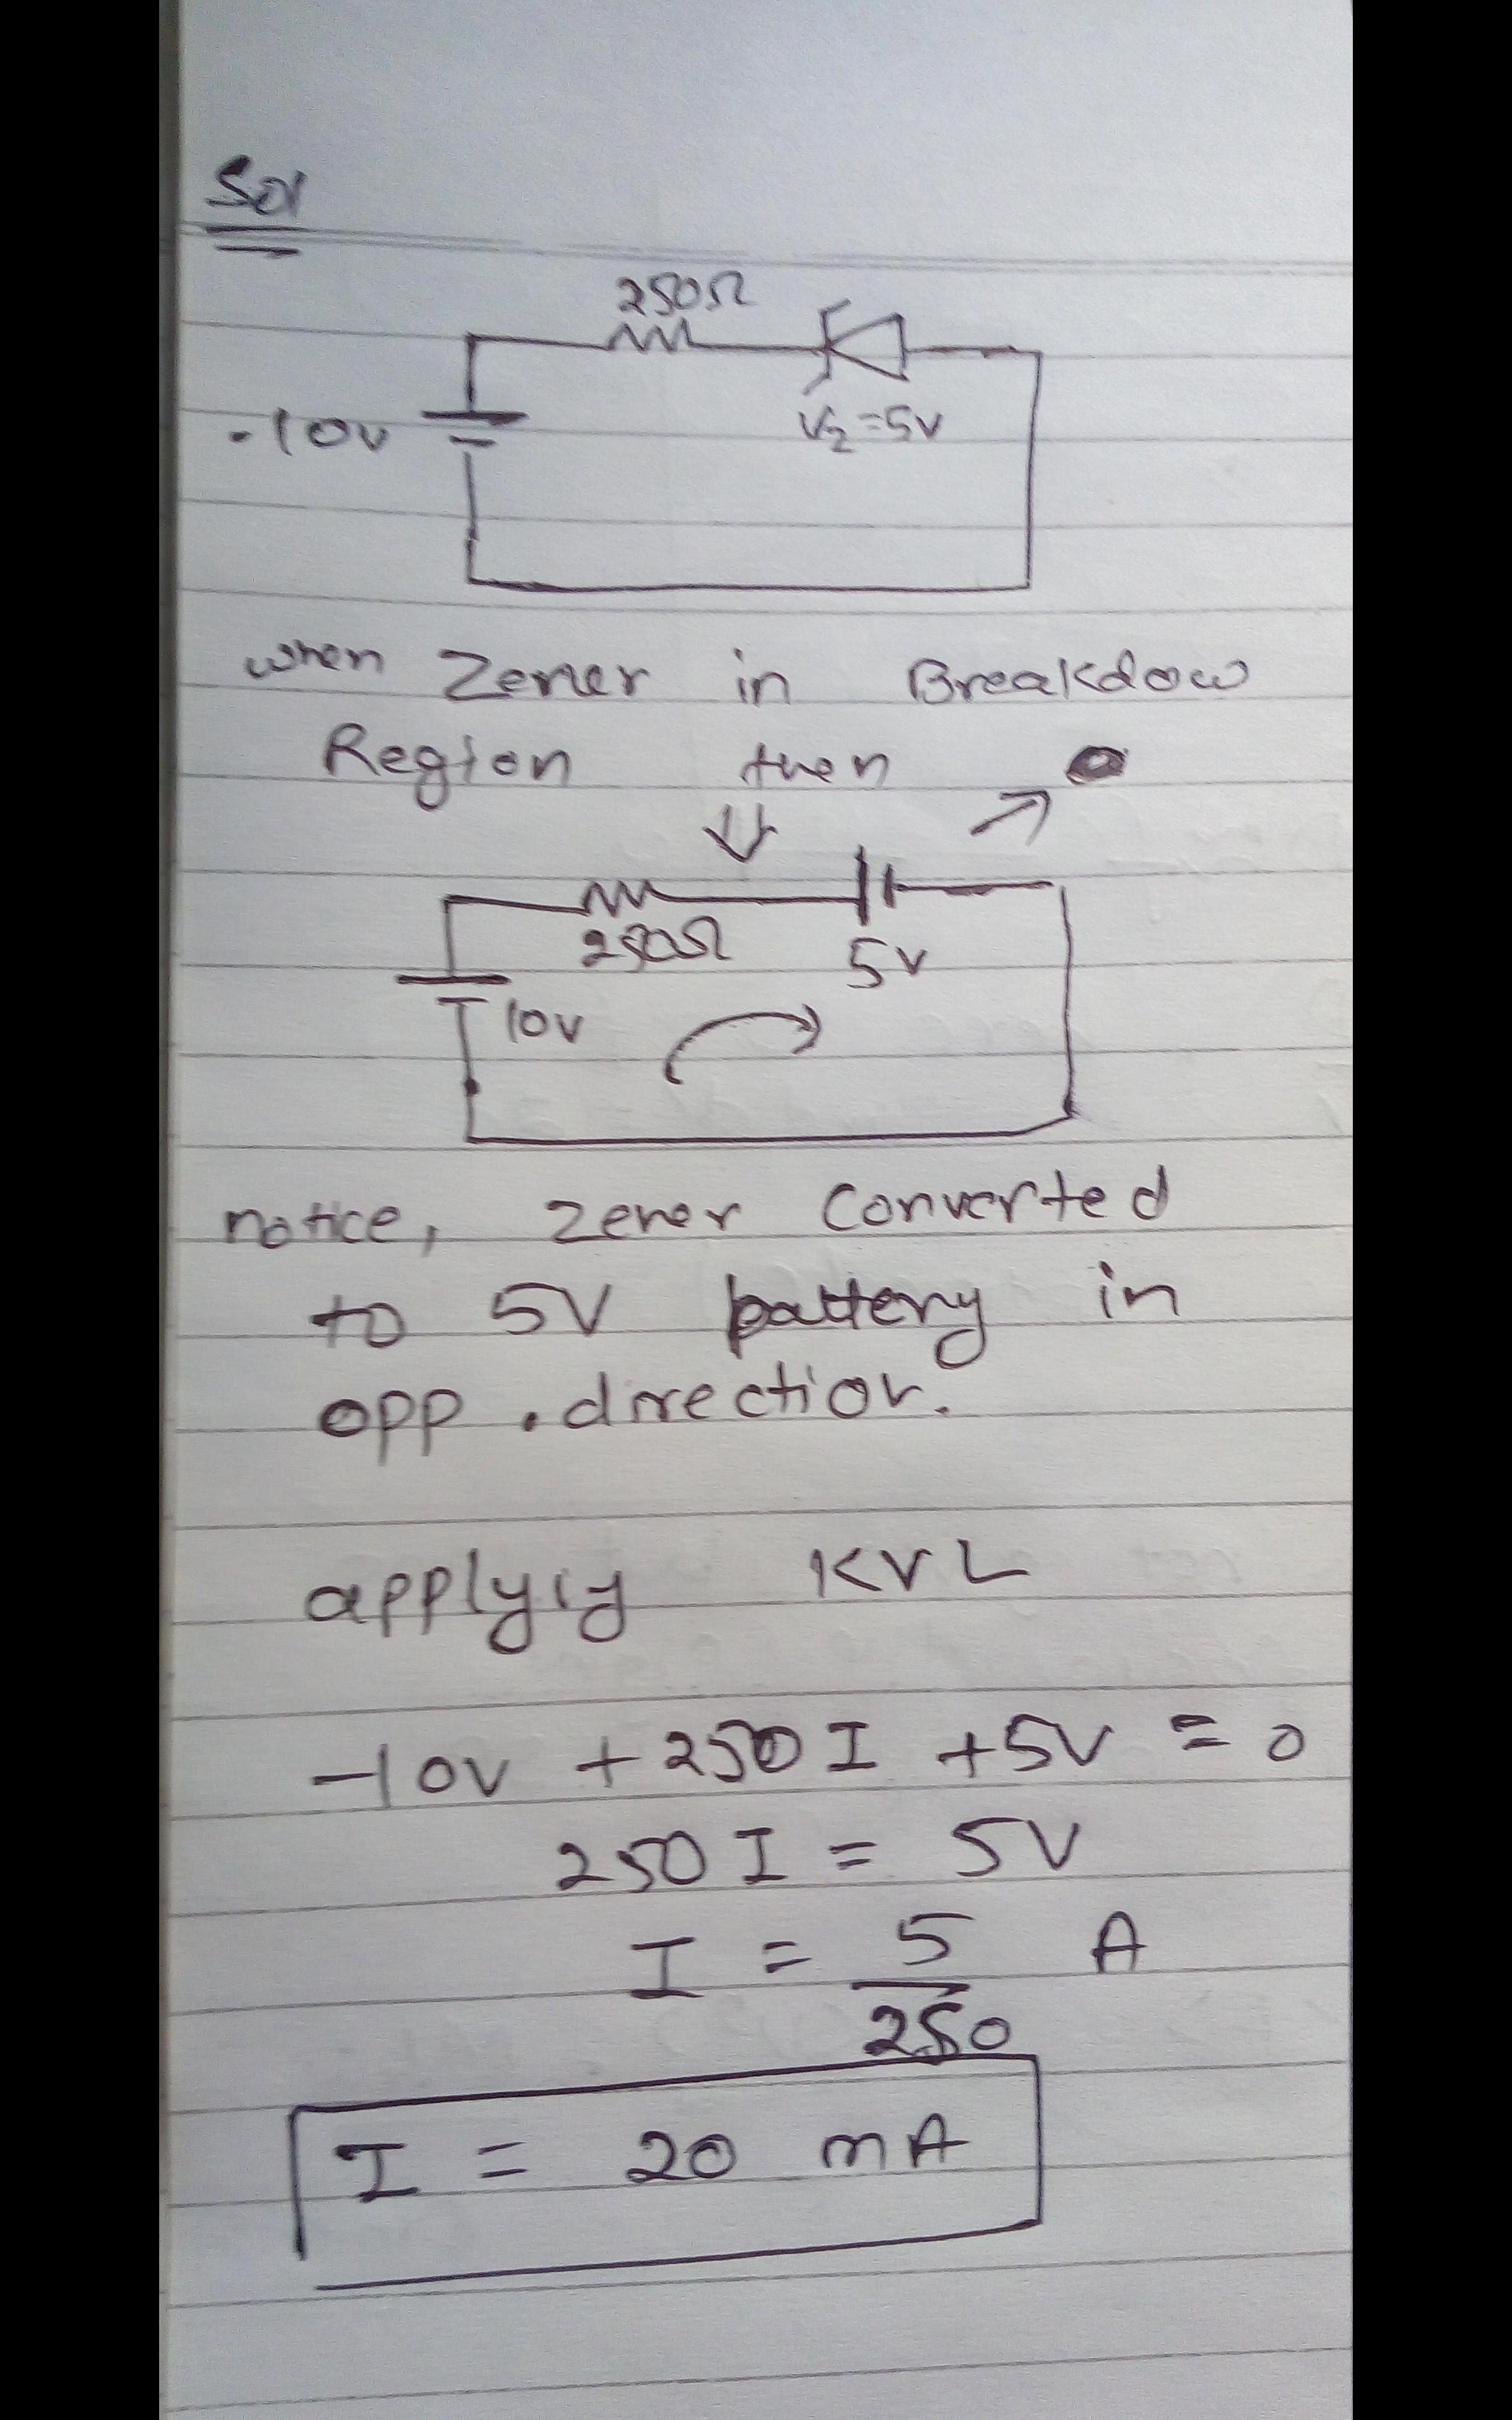 Sol
250Ω
-10v
Vz=5v
when Zener in Breakdow
Region then
250Ω
5v
10v
notice, zener converted
to 5V battery in
opp. direction.
applyig KVL
-10v + 250 I + 5V = 0
250 I = 5V
I = 5 A
250
I = 20 mA